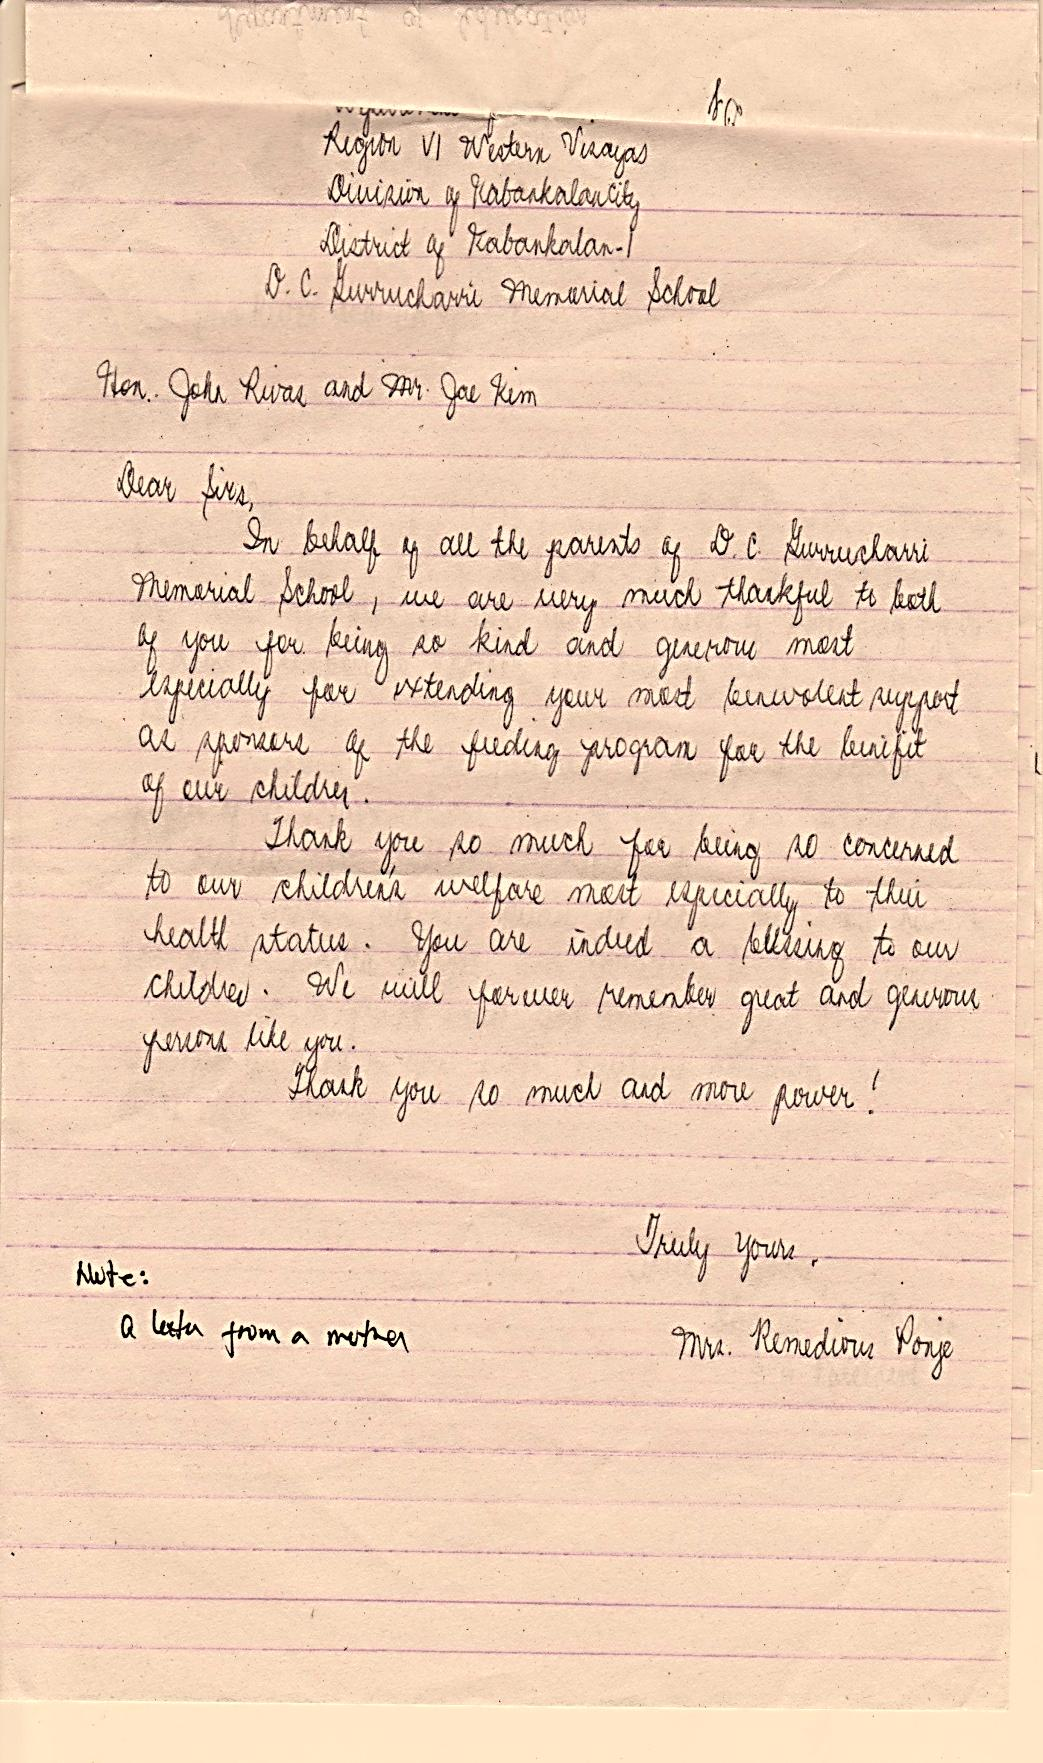 Department of Education
Region VI Western Visayas
Division of Kabankalan City
District of Kabankalan-1
D. C. Gurrucharri Memorial School
Hon. John Rivas and Mr. Jae Kim
Dear Sirs,
In behalf of all the parents of D. C. Gurrucharri
Memorial School, we are very much thankful to both
of you for being so kind and generous most
especially for extending your most benevolent support
as sponsors of the feeding program for the benifit
of our children.
Thank you so much for being so concerned
to our children's welfare most especially to their
health status. You are indeed a blessing to our
children. We will forever remember great and generous
persons like you.
Thank you so much and more power!
Truly yours,
Note:
A letter from a mother
Mrs. Remedious Ponje